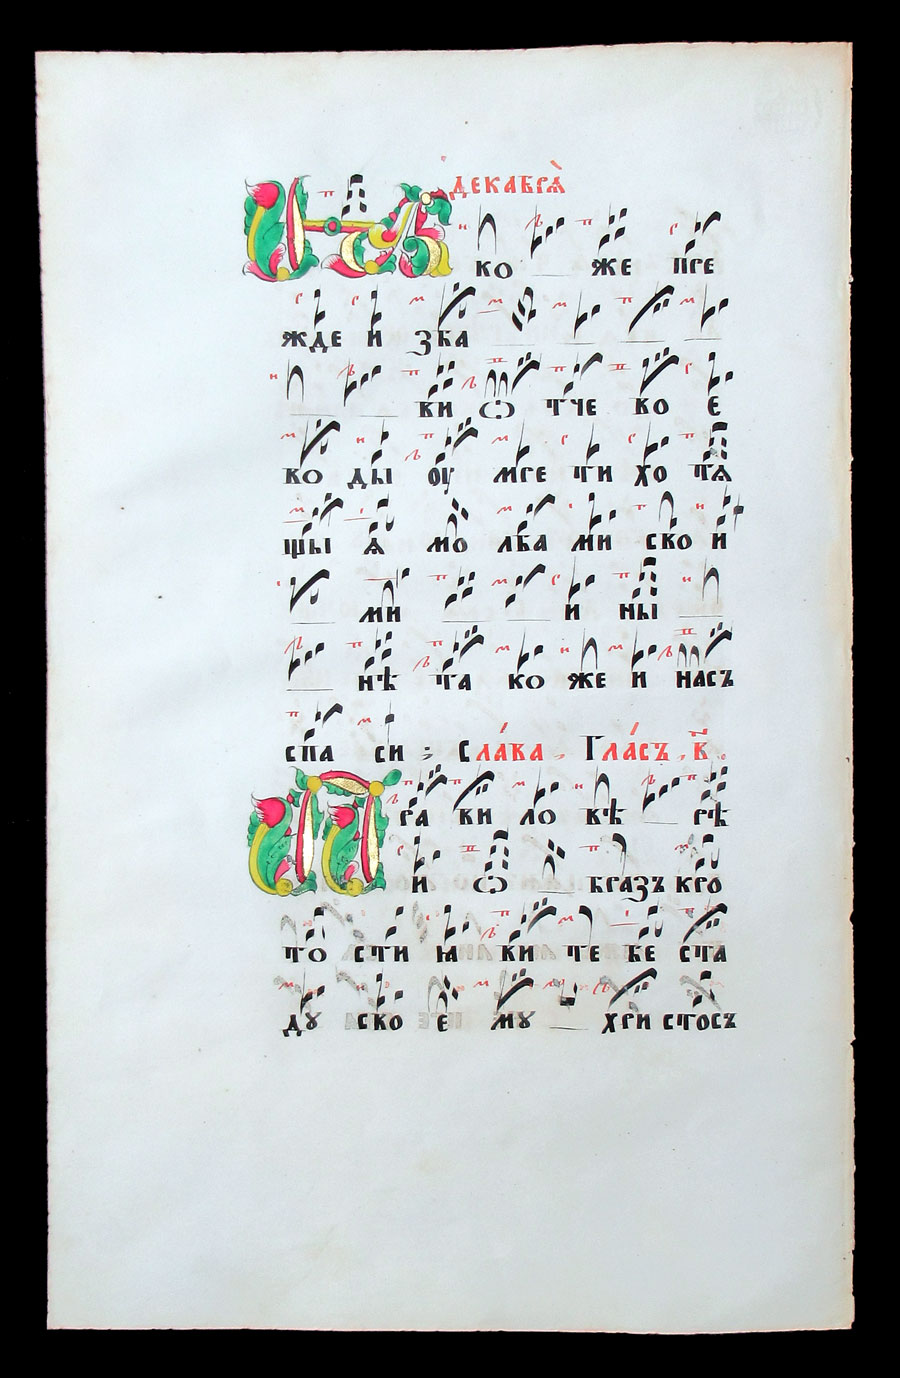 декабрѧ̀
Ꙗ ко же пре
жде и зба
ви ѿ тче во е
во ды ѹ мре ти хо тѧ
щы ѧ мо лба ми ско и
ми и ны
нѣ та ко же и насъ
спа си ; Сла́ва , Гла́съ , в҃ .
П ра ви ло вѣ рѣ
и ѡ бразъ кро
то сти ꙗ ви те бе ста
ду ско е му хри стосъ